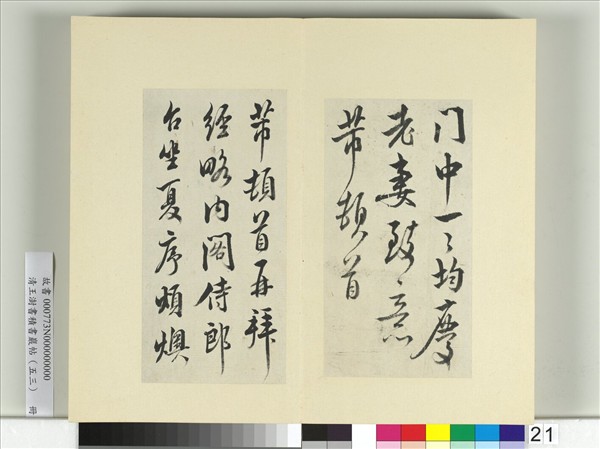 门中一一均慶
老妻致意
芾頓首
芾頓首再拜
經略内閣侍郎
台坐夏序煩燠
故書 000773N000000000
清王澍書積書巖帖（五三） 冊
21